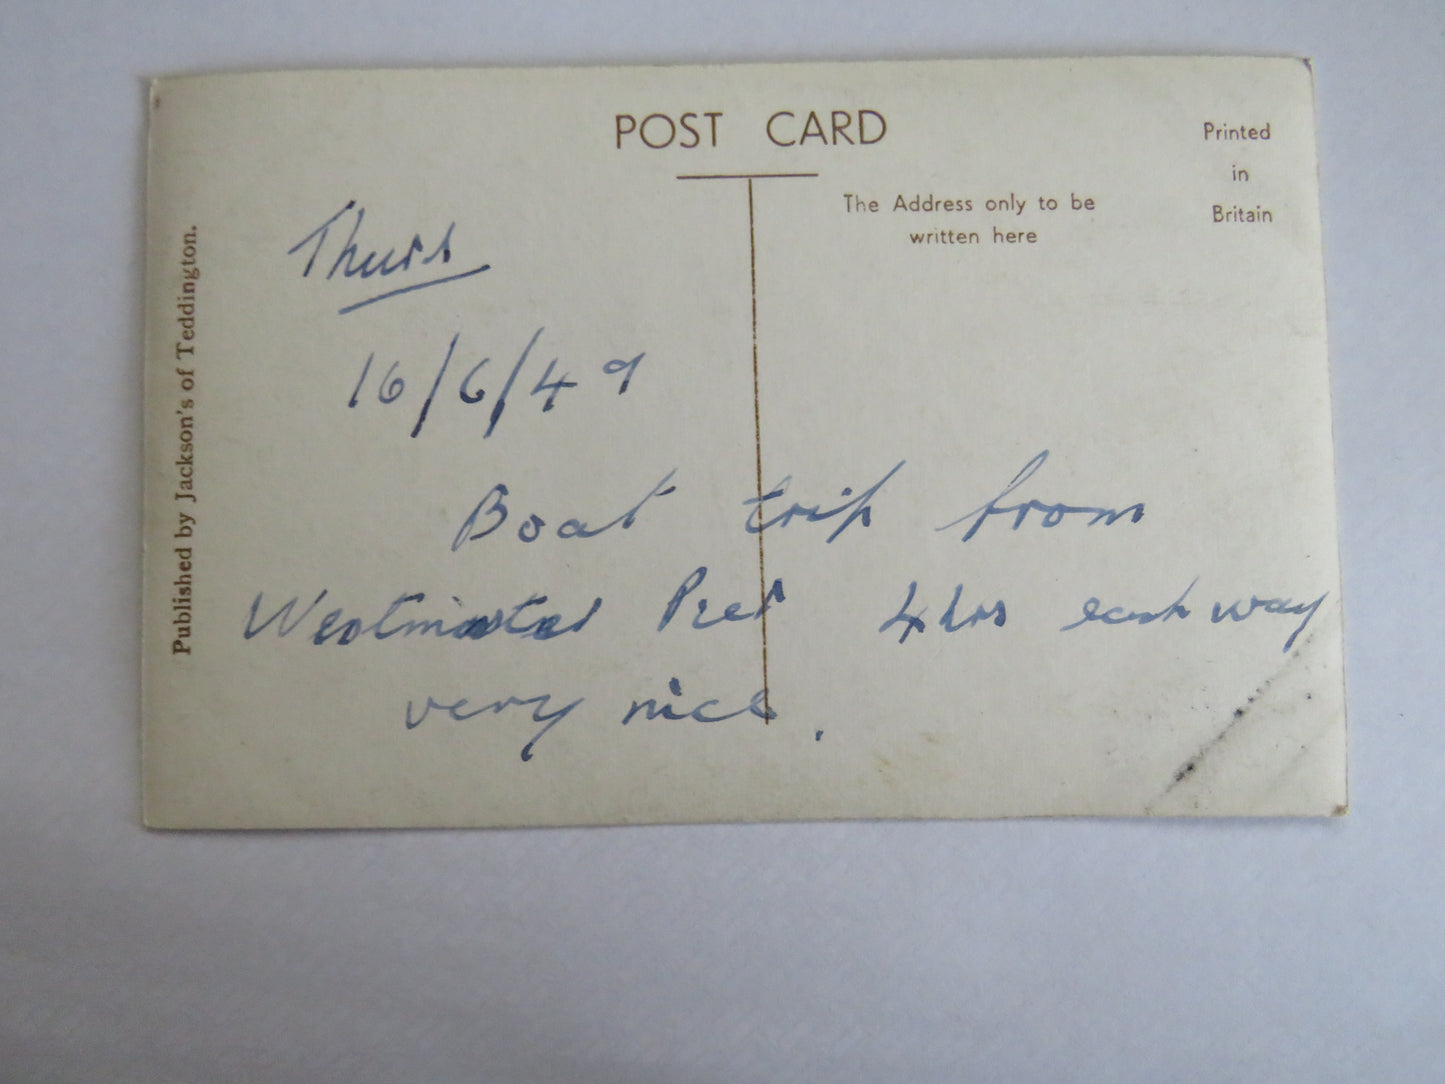 POST CARD
Printed
in
Britain
The Address only to be
written here
Published by Jackson's of Teddington.
Thurs
16/6/49
Boat trip from
Westminster Pier 4 hrs each way
very nice.